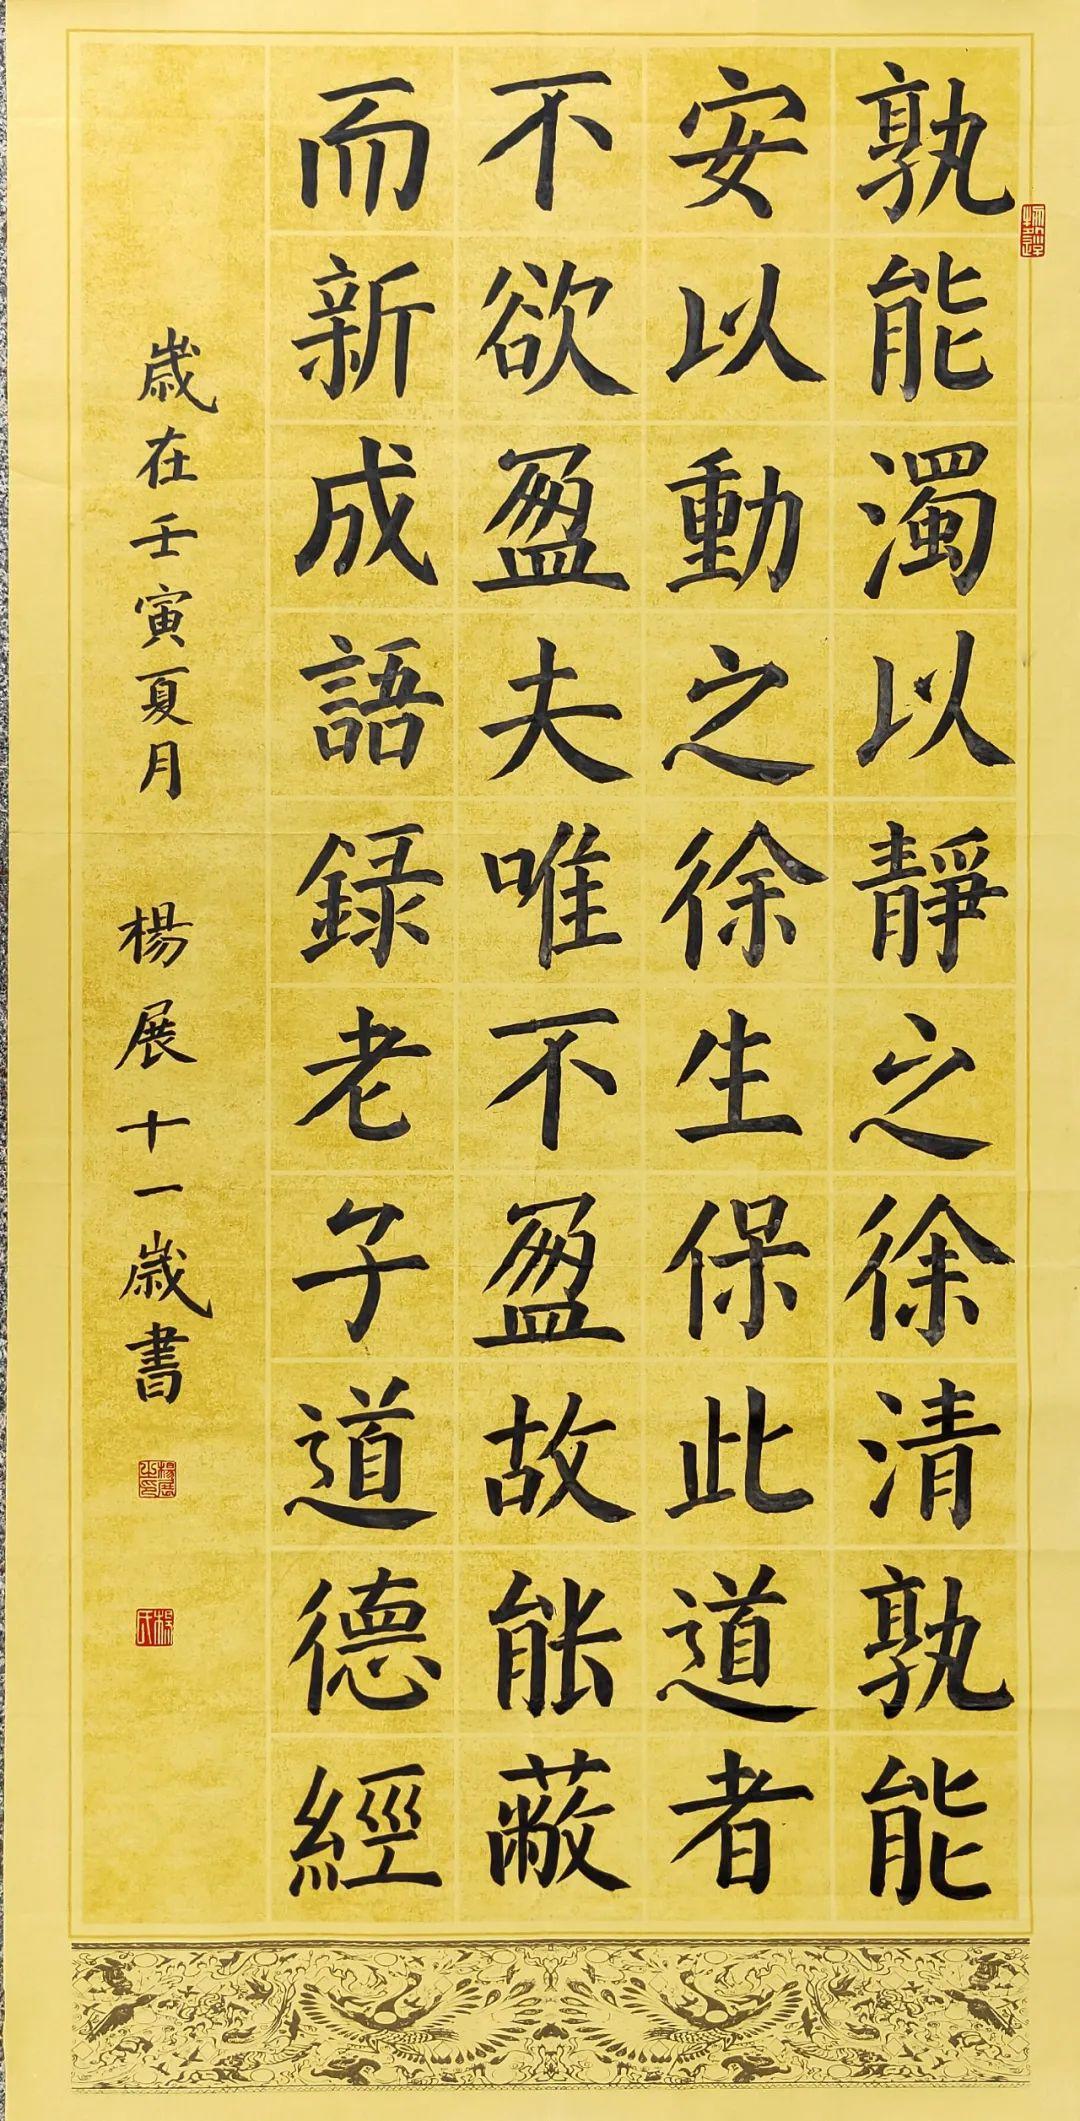 孰能濁以靜之徐清孰能
安以動之徐生保此道者
不欲盈夫唯不盈故能蔽
而新成語録老子道德經
歲在壬寅夏月 楊展十一歲書
楊展之印
楊氏